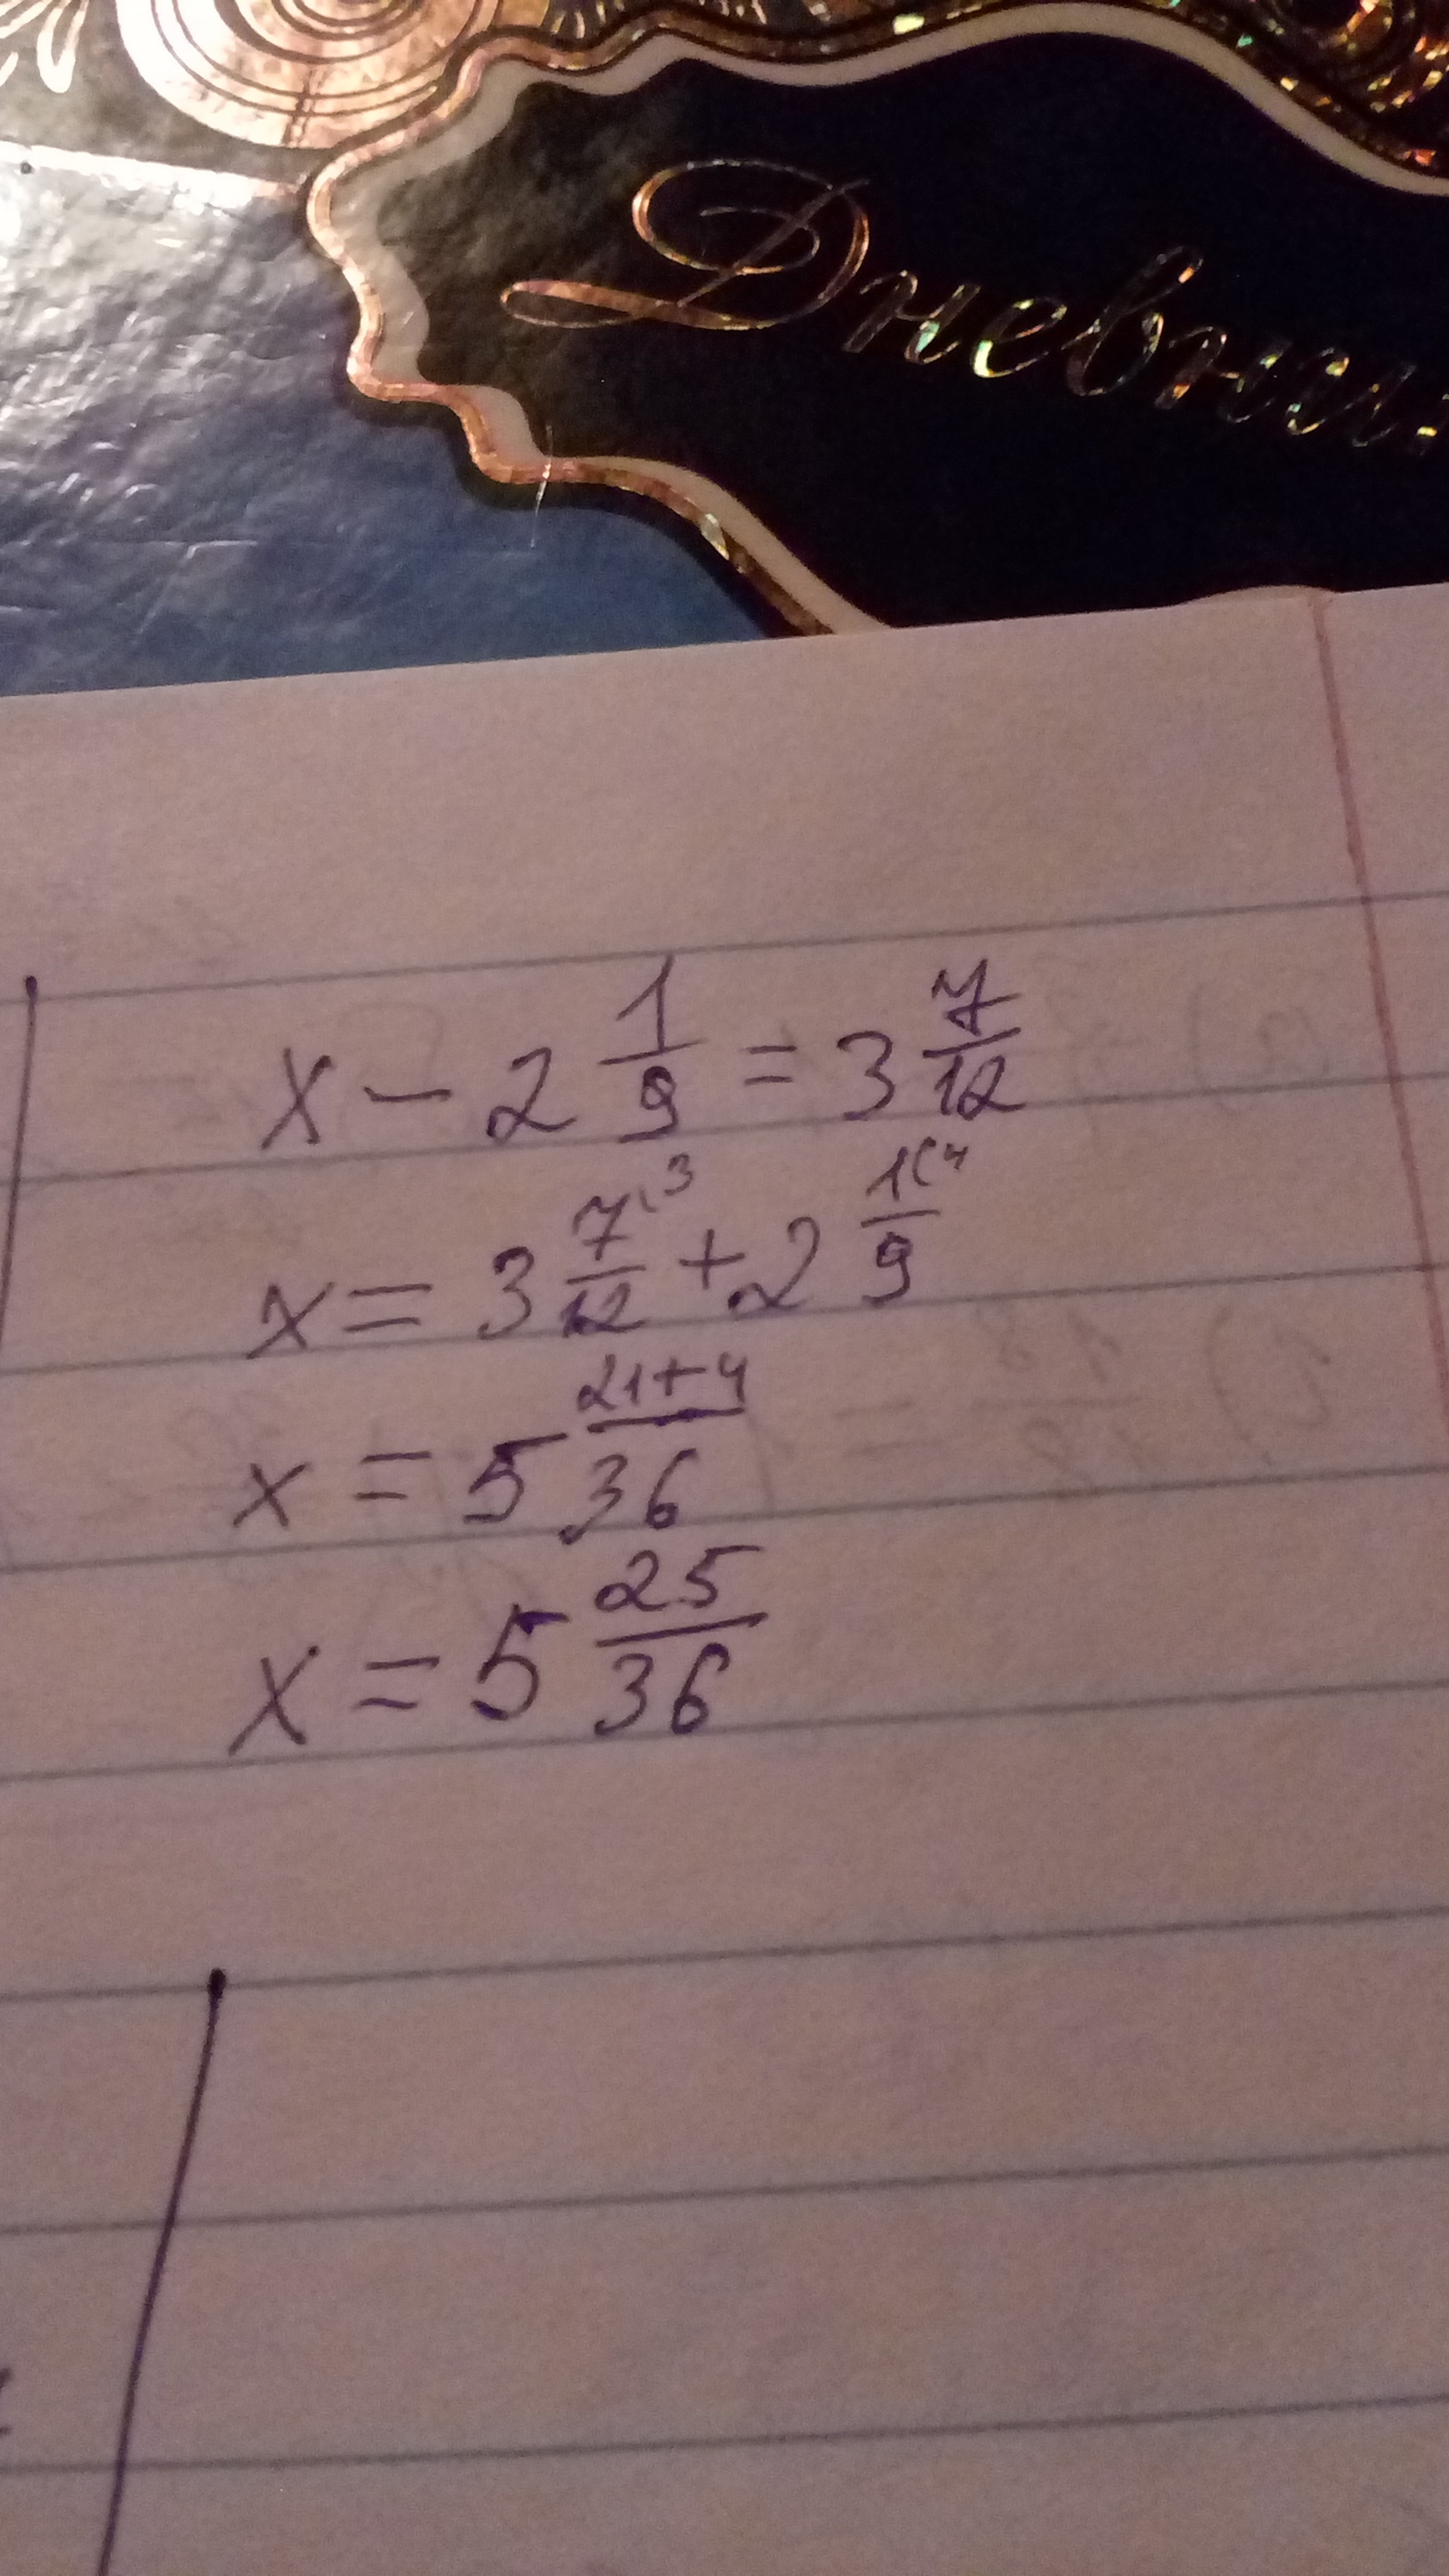 Дневни
x - 2 1/9 = 3 7/12
x = 3 7/12 (3 + 2 1/9 (4
x = 5 21+4/36
x = 5 25/36